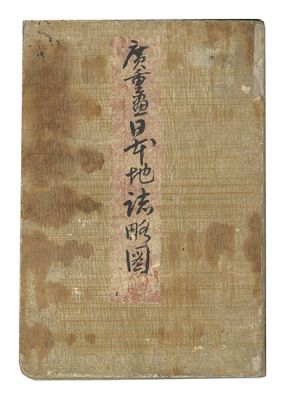 廣重畫日本地誌略圖